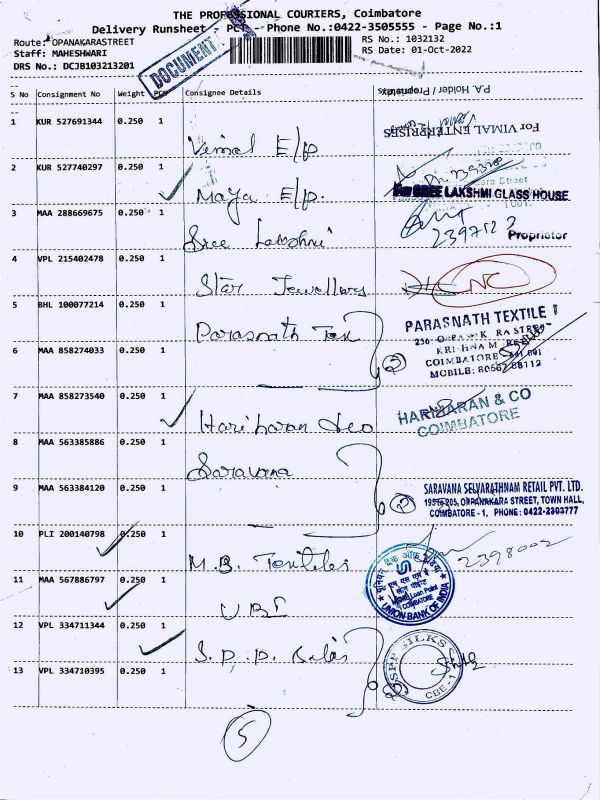 THE PROFESSIONAL COURIERS, Coimbatore
Delivery Runsheet - PCT - Phone No.:0422-3505555 - Page No.:1
Route: OPANAKARASTREET
RS No.: 1032132
Staff: MAHESHWARI
RS Date: 01-Oct-2022
DRS No.: DCJB103213201
DOCUMENT
S No Consignment No Weight PCS Consignee Details
P.A. Holder /
1 KUR 527691344 0.250 1 Vimal E/P
For VIMAL ENTERPRISES
2 KUR 527740297 0.250 1 Maya E/P.
SREE LAKSHMI GLASS HOUSE
3 MAA 288669675 0.250 1 Sree Lakshmi
Proprietor
4 VPL 215402478 0.250 1 Star Jewellars
NC
5 BHL 100077214 0.250 1 Parasnath Tex
PARASNATH TEXTILE
COIMBATORE
MOBILE:
6 MAA 858274033 0.250 1
2
7 MAA 858273540 0.250 1 Hariharan
HARIHARAN & CO
COIMBATORE
8 MAA 563385886 0.250 1 Saravana
9 MAA 563384120 0.250 1
2
SARAVANA SELVARATHNAM RETAIL PVT. LTD.
OPPANAKARA STREET, TOWN HALL,
COIMBATORE - 1. PHONE: 0422-2303777
10 PLI 200140798 0.250 1 M.B. Textiles
2398002
11 MAA 567886797 0.250 1 UBI
यूनियन बैंक ऑफ इंडिया
COIMBATORE
UNION BANK OF INDIA
12 VPL 334711344 0.250 1 S.P.P. Silks
13 VPL 334710395 0.250 1
2
SILKS
CBE - 1
5